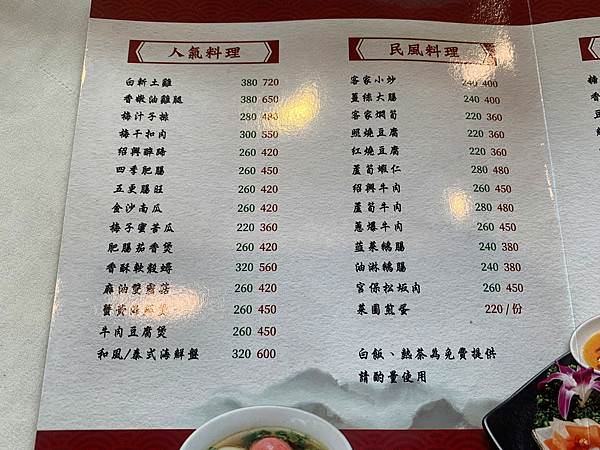 人氣料理
白斬土雞 380 720
香嫩油雞腿 380 650
梅汁子排 280 480
梅干扣肉 300 550
紹興醉蹄 260 420
四季肥腸 260 450
五更腸旺 260 420
金沙南瓜 260 420
梅子蜜苦瓜 220 360
肥腸茄香煲 260 420
香酥軟殼蟳 320 560
麻油雙菇 260 420
蟹黃 260 450
牛肉豆腐煲 260 450
和風/泰式海鮮盤 320 600
民風料理
客家小炒 240 400
薑絲大腸 240 400
客家燜筍 220 360
照燒豆腐 220 360
紅燒豆腐 220 360
蘆筍蝦仁 280 480
紹興牛肉 260 450
蘆筍牛肉 280 480
蔥爆牛肉 260 450
韮菜鵝腸 240 380
油淋鵝腸 240 380
宮保松坂肉 260 450
菜圃煎蛋 220/份
白飯、熱茶為免費提供
請酌量使用